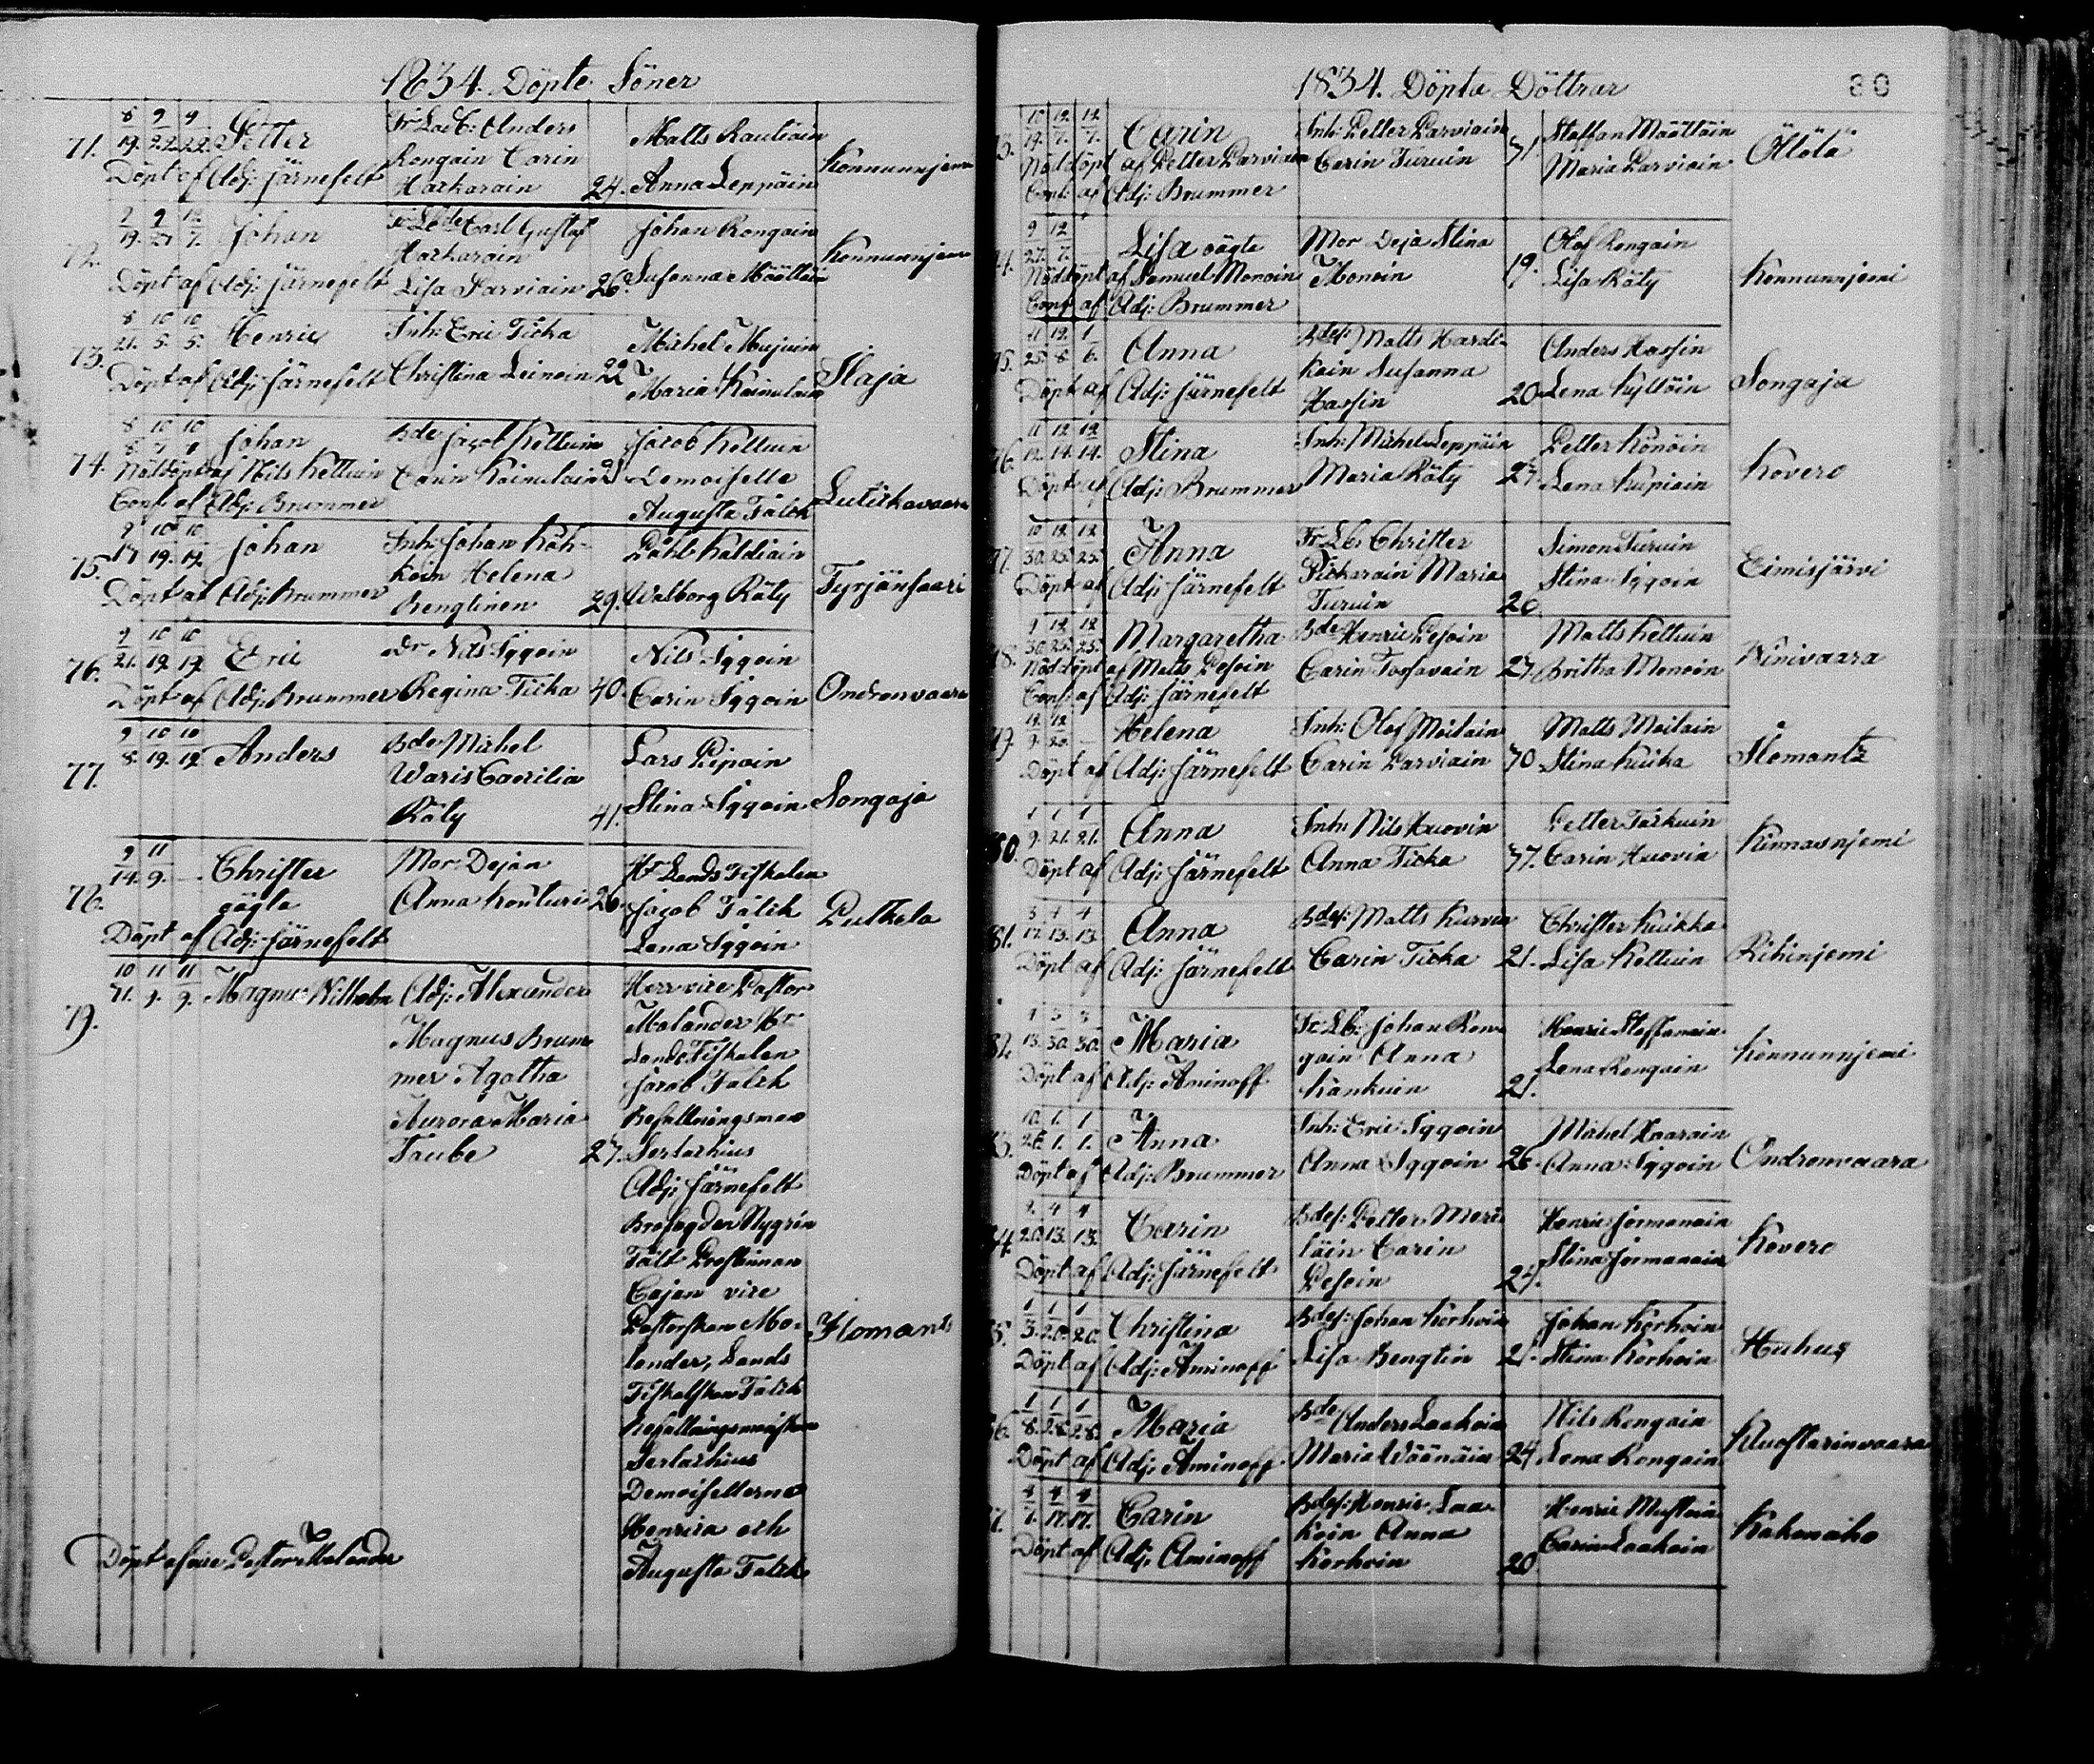 1834. Döpte Söner
71. 8/19. 9/22. 9/22. Petter
Döpt af Adj: Järnefelt
Anders
Rongain Carin
Harkarain 24.
Matts Rautiain
Anna Leppäin
Konnunnjemi
72. Johan
Döpt af Adj: Järnefelt
Carl Gustaf
Harkarain
Lisa Parviain 26.
Johan Rongain
Susanna Määttäin
Konnunnjemi
73. 8/21. 10/5. 10/5. Henric
Döpt af Adj: Järnefelt
Inh: Eric Ticka
Christina Leinoin 22
Michel Mujuin
Maria Kainulain
Ilaja
74. Johan
Nöddöpt af Nils Kettuin
Conf: af Adj: Brummer
Bde Jacob Kettuin
Carin Kainulain
Jacob Kettuin
Demoiselle
Augusta Falck
Lutickavaara
75. Johan
Döpt af Adj: Brummer
Inh: Johan Kok-
koin Helena
Bengtinen 29.
Påhl Kaldiain
Walborg Räty
Tyrjänsaari
76. Eric
Döpt af Adj: Brummer
Nils Iggoin
Regina Ticka 40.
Nils Iggoin
Carin Iggoin
Ondronvaara
77. Anders
Bde Michel
Waris Caecilia
Räty 41.
Lars Pipoin
Stina Iggoin
Songaja
78. 9/14. 11/9. Christer
oägta
Döpt af Adj: Järnefelt
Mor Dejan
Anna Konturi 26.
Hr Lands Fiskalen
Jacob Falck
Lena Iggoin
Putkela
79. 11/9. 11/9. Magnus Wilhelm
Adj: Alexander
Magnus Brum-
mer Agatha
Aurora Maria
Taube 27.
Herr vice Pastor
Molander Hr
Lands Fiskalen
Jacob Falck
Befallningsman
Serlachius
Adj: Järnefelt
Nygrén
Fält Prostinnan
Cajan vice
Pastorskan Mo-
lander, Lands
Fiskalskan Falck
Serlachius
Demoisellerna
Henrica och
Augusta Falck
Ilomants
Döpt af vice Pastor Molander
1834. Döpta Döttrar
80
Carin
Nöddöpt af Petter Parviain
Conf: af Adj: Brummer
Inh: Petter Parviain
Carin Turuin 31.
Staffan Määttäin
Maria Parviain
Öllölä
Lisa oägta
Nöddöpt af Samuel Monoin
Conf: af Adj: Brummer
Mor Deja Stina
Monoin 19.
Olof Rongain
Lisa Räty
Konnunnjemi
Anna
Döpt af Adj: Järnefelt
Bdes: Matts Hardi-
kain Susanna
Hassin 20.
Anders Hassin
Lena Kyllöin
Songaja
Stina
Döpt af Adj: Brummer
Inh: Michel Leppäin
Maria Räty 27.
Petter Könöin
Lena Kupiain
Kovero
Anna
Döpt af Adj: Järnefelt
Christer
Pickarain Maria
Turuin 20
Simon Turuin
Stina Iggoin
Eimisjärvi
Margaretha
Nöddöpt af Matts Pesoin
Conf: af Adj: Järnefelt
Bde Henric Pesoin
Carin Tossavain 27.
Matts Kettuin
Britha Monoin
Kinivaara
Helena
Döpt af Adj: Järnefelt
Inh: Olof Moilain
Carin Parviain 30
Matts Moilain
Stina Kuika
Ilomantz
80. 1/9. 1/21. 1/21. Anna
Döpt af Adj: Järnefelt
Inh: Nils Huovin
Anna Ticka 37.
Petter Tarkuin
Carin Huovin
Kinnasnjemi
81. Anna
Döpt af Adj: Järnefelt
Bdes: Matts Kurvin
Carin Ticka 21.
Christer Kuikka
Lisa Kettuin
Rihinjemi
82. Maria
Döpt af Adj: Aminoff
Johan Ron-
gain Anna
Kankuin 21.
Henric Staffanain
Lena Rongain
Konnunnjemi
Anna
Döpt af Adj: Brummer
Inh: Eric Iggoin
Anna Iggoin 26.
Michel Hoarain
Anna Iggoin
Ondronvaara
Carin
Döpt af Adj: Järnefelt
Bdes: Petter Meri-
läin Carin
Pesoin
Henric Jormanain
Stina Jormanain
Kovero
1/3. 1/20. 1/20. Christina
Döpt af Adj: Aminoff
Bdes: Johan Korhoin
Lisa Bengtin 21.
Johan Korhoin
Stina Korhoin
Huhus
1/8. 1/28. 1/28. Maria
Döpt af Adj: Aminoff
Bde Anders Laakoin
Maria Wäänäin 24.
Nils Rongain
Lena Rongain
Kluostarinvaara
Carin
Döpt af Adj: Aminoff
Bdes: Henric Laa-
koin Anna
Korhoin 20
Henric Mustoin
Carin Laakoin
Kakonaho